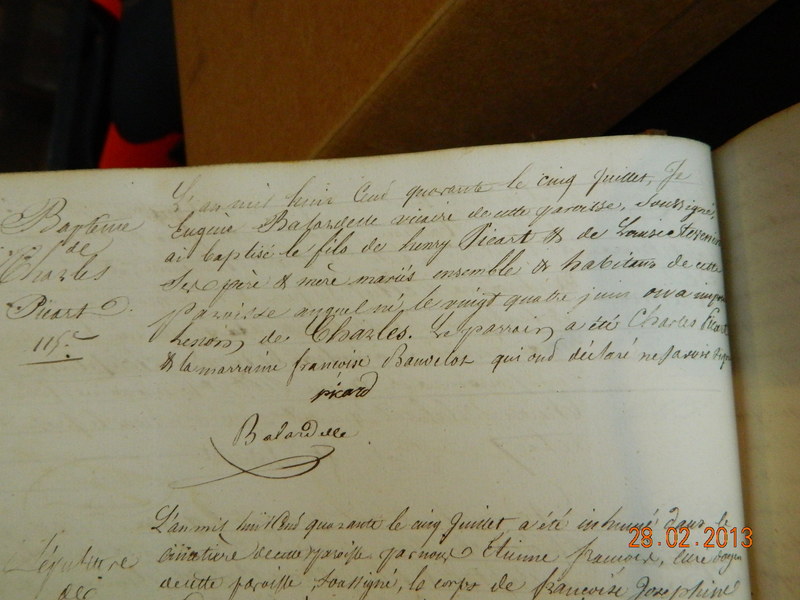 Bapteme
de
Charles
Picart
115e
L'an mil huit Cent quarante le cinq Juillet, Je
Eugène Balardelle vicaire de cette paroisse, soussigné,
ai baptisé le fils de henry Picart & de Louise
Ses père & mère mariés ensemble & habitans de cette
paroisse auquel né le vingt quatre juin on a imposé
le nom de Charles. Le parrain a été Charles Picart
& la marraine françoise Bauvelot qui ont déclaré ne savoir signer
picard
Balardelle
Sépulture
de
L'an mil huit Cent quarante le cinq Juillet a été inhumé dans le
cimetière de cette paroisse par nous Etienne françois, curé doyen
de cette paroisse soussigné, le corps de françoise Josephine
28.02.2013